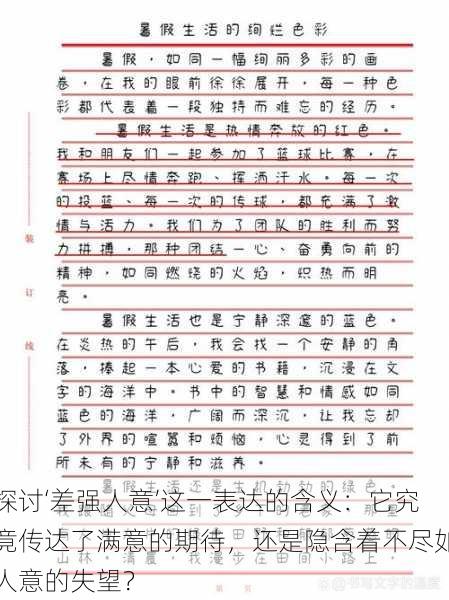 暑假生活的绚烂色彩
暑假，如同一幅绚丽多彩的画
卷，在我的眼前徐徐展开，每一种色
彩都代表着一段独特而难忘的经历。
暑假生活是热情奔放的红色。
我和朋友们一起参加了篮球比赛，在
赛场上尽情奔跑、挥洒汗水。每一次
的投篮、每一次的传球，都充满了激
情与活力。我们为了团队的胜利而努
力拼搏，那种团结一心、奋勇向前的
精神，如同燃烧的火焰，炽热而明
亮。
暑假生活也是宁静深邃的蓝色。
在炎热的午后，我会找一个安静的角
落，捧起一本心爱的书籍，沉浸在文
字的海洋中。书中的智慧和情感如同
蓝色的海洋，广阔而深沉，让我忘却
了外界的喧嚣和烦恼，心灵得到了前
所未有的宁静和滋养。
暑假生活还是生机勃勃的绿色。
探讨‘差强人意’这一表达的含义：它究
竟传达了满意的期待，还是隐含着不尽如
人意的失望？
山林。清晨，我漫步在田间小路上，
装
订
线
第 页
@书写文字的温度